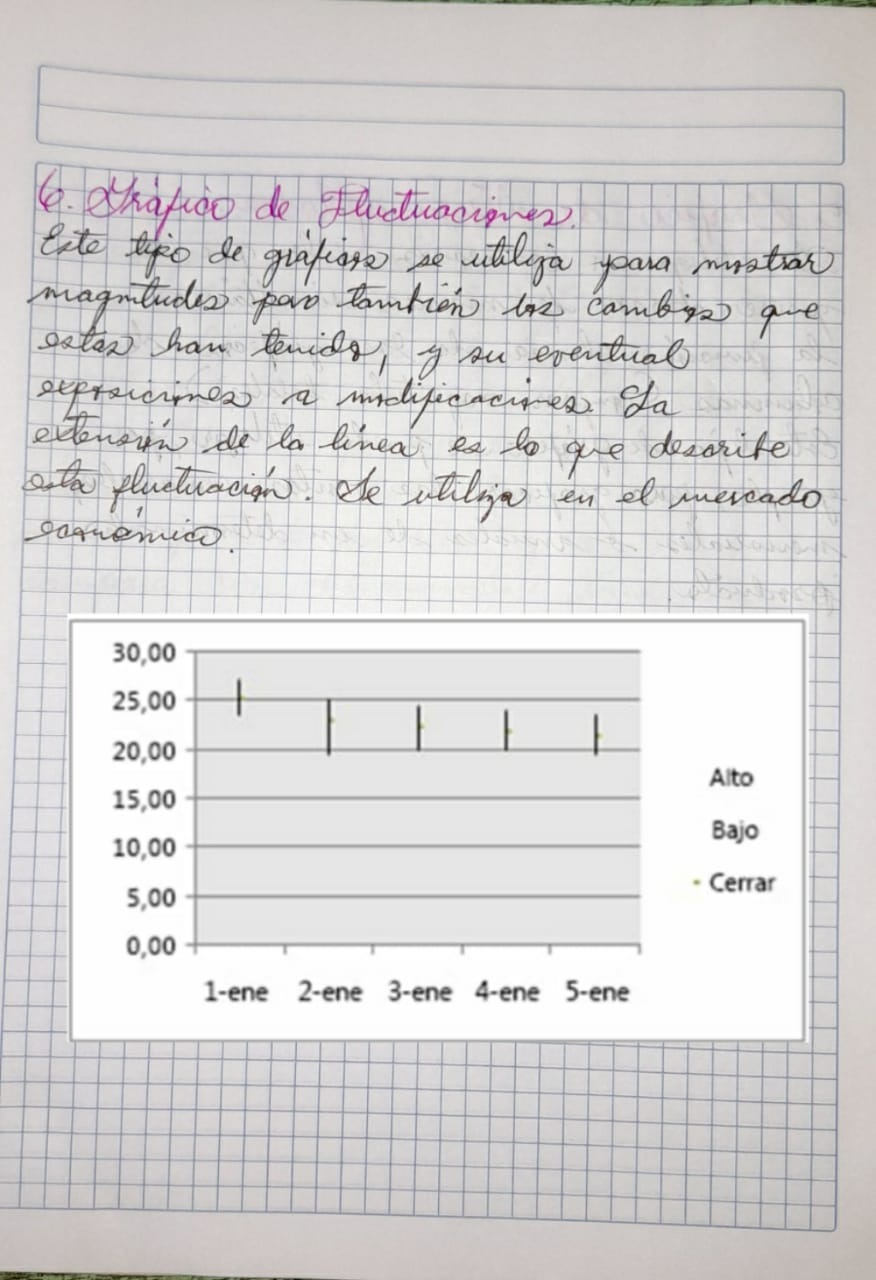 6. Gráfico de Fluctuaciones.
Este tipo de gráficos se utiliza para mostrar
magnitudes pero también los cambios que
estas han tenido, y su eventual
exposiciones a modificaciones. La
extensión de la línea es lo que describe
esta fluctuación. Se utiliza en el mercado
económico.
30,00
25,00
20,00
15,00
10,00
5,00
0,00
1-ene 2-ene 3-ene 4-ene 5-ene
Alto
Bajo
Cerrar